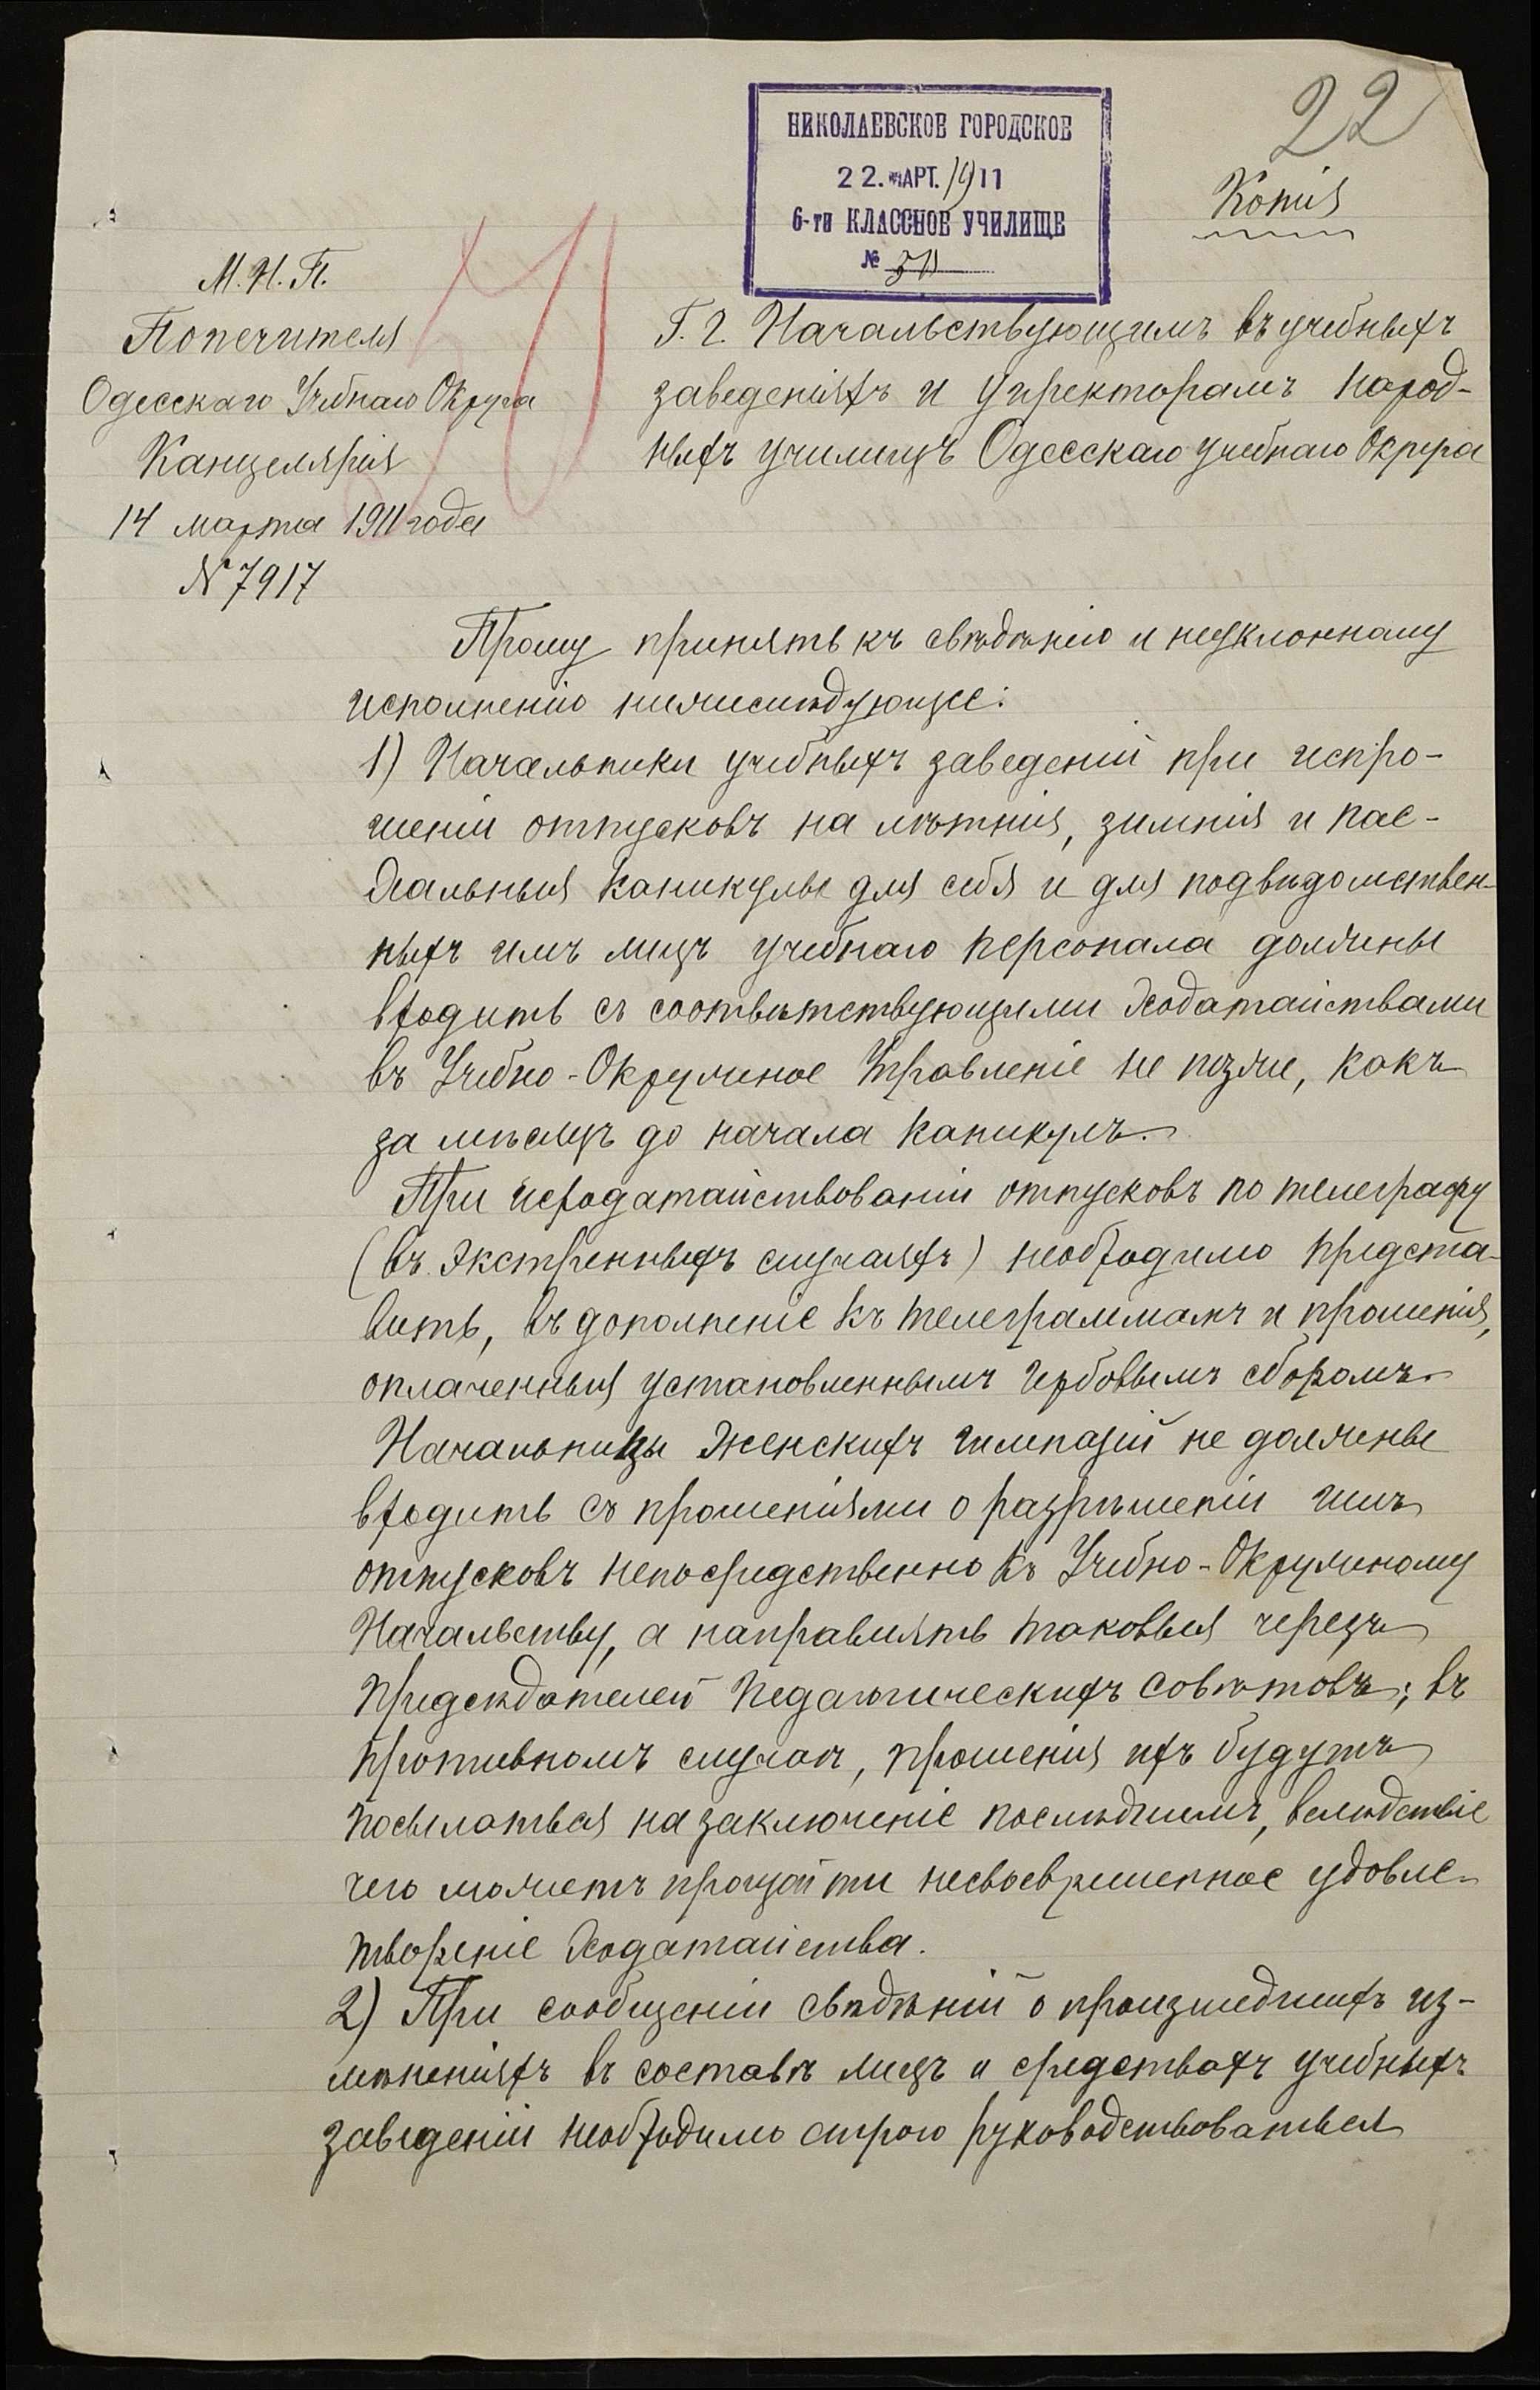 22
НИКОЛАЕВСКОЕ ГОРОДСКОЕ
22. МАРТ. 1911
6-ти КЛАССНОЕ УЧИЛИЩЕ
№
Копія
М. Н. П.
Попечителя
Одесскаго Учебнаго Округа
Канцелярія
14 марта 1911 года
№ 7917
Г. г. Начальствующимъ въ учебныхъ
заведеніяхъ и Директорамъ народ-
ныхъ училищъ Одесскаго учебнаго Округа
Прошу принять къ свѣдѣнію и неуклонному
исполненію нижеслѣдующее:
1) Начальники учебныхъ заведеній при испро-
шеніи отпусковъ на лѣтнія, зимнія и пас-
хальныя каникулы для себя и для подвѣдомствен-
ныхъ имъ лицъ учебнаго персонала должны
входить съ соотвѣтствующими ходатайствами
въ Учебно-Окружное Управленіе не позже, какъ
за мѣсяцъ до начала каникулъ.
При исходатайствованіи отпусковъ по телеграфу
(въ экстренныхъ случаяхъ) необходимо предста-
вить, въ дополненіе къ телеграммамъ и прошенія,
оплаченныя установленнымъ гербовымъ сборомъ.
Начальницы женскихъ гимназій не должны
входить съ прошеніями о разрѣшеніи имъ
отпусковъ непосредственно къ Учебно-Окружному
Начальству, а направлять таковыя черезъ
Предсѣдателей Педагогическихъ Совѣтовъ; въ
противномъ случаѣ, прошенія ихъ будутъ
посылаться на заключеніе послѣднимъ, вслѣдствіе
чего можетъ произойти несвоевременное удовле-
твореніе ходатайства.
2) При сообщеніи свѣдѣній о происшедшихъ из-
мѣненіяхъ въ составѣ лицъ и средствахъ учебныхъ
заведеній необходимо строго руководствоваться